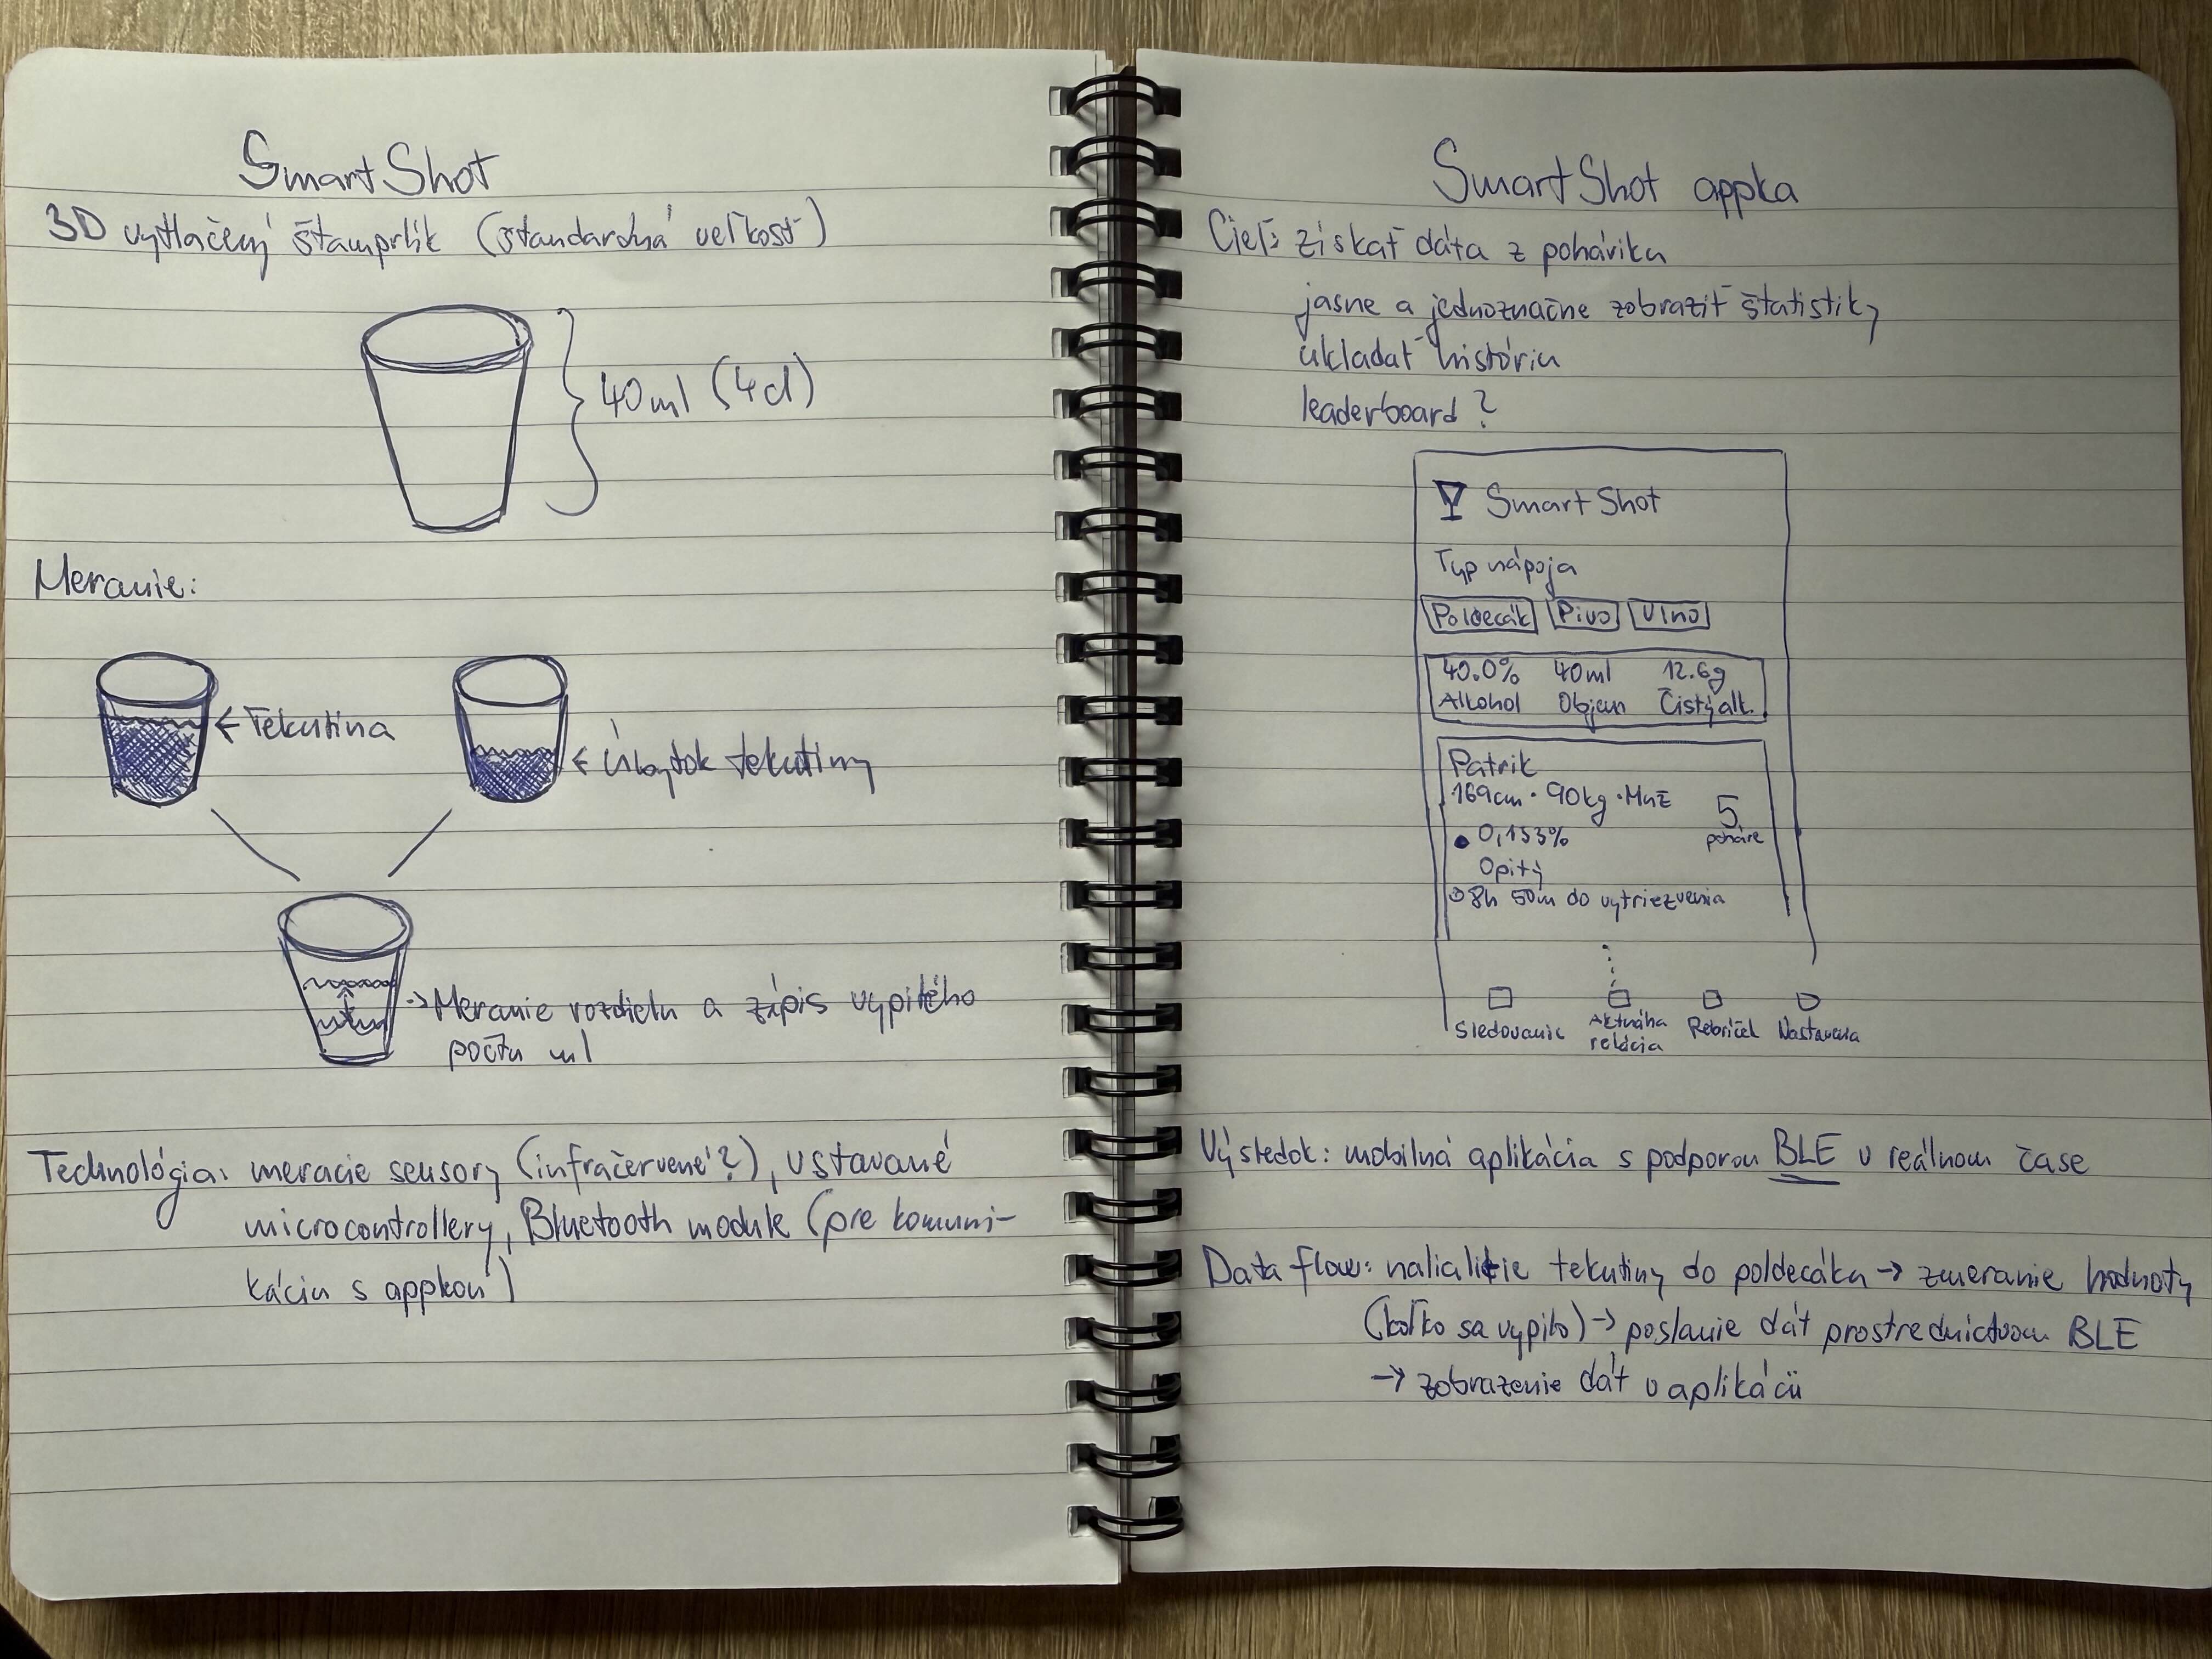 SmartShot
3D vytlačený štamprlík (štandardná veľkosť)
40ml (4cl)
Meranie:
← Tekutina
← Úbytok tekutiny
→ Meranie rozdielu a zápis vypitého
počtu ml
Technológia: meracie sensory (infračervené?), vstavané
microcontrollery, Bluetooth module (pre komuni-
káciu s appkou)
SmartShot appka
Cieľ: získať dáta z pohárika
jasne a jednoznačne zobraziť štatistiky
ukladať históriu
leaderboard?
SmartShot
Typ nápoja
Poldecák Pivo Víno
40.0% 40ml 12.6g
Alkohol Objem Čistý alk.
Patrik
169cm · 90kg · Muž
5
poháre
• 0,153%
Opitý
8h 50m do vytriezvenia
Sledovanie Aktuálna Rebríček Nastavenia
relácia
Výsledok: mobilná aplikácia s podporou BLE v reálnom čase
Data flow: tekutiny do poldecáku → zmeranie hodnoty
(koľko sa vypilo) → poslanie dát prostredníctvom BLE
→ zobrazenie dát v aplikácii